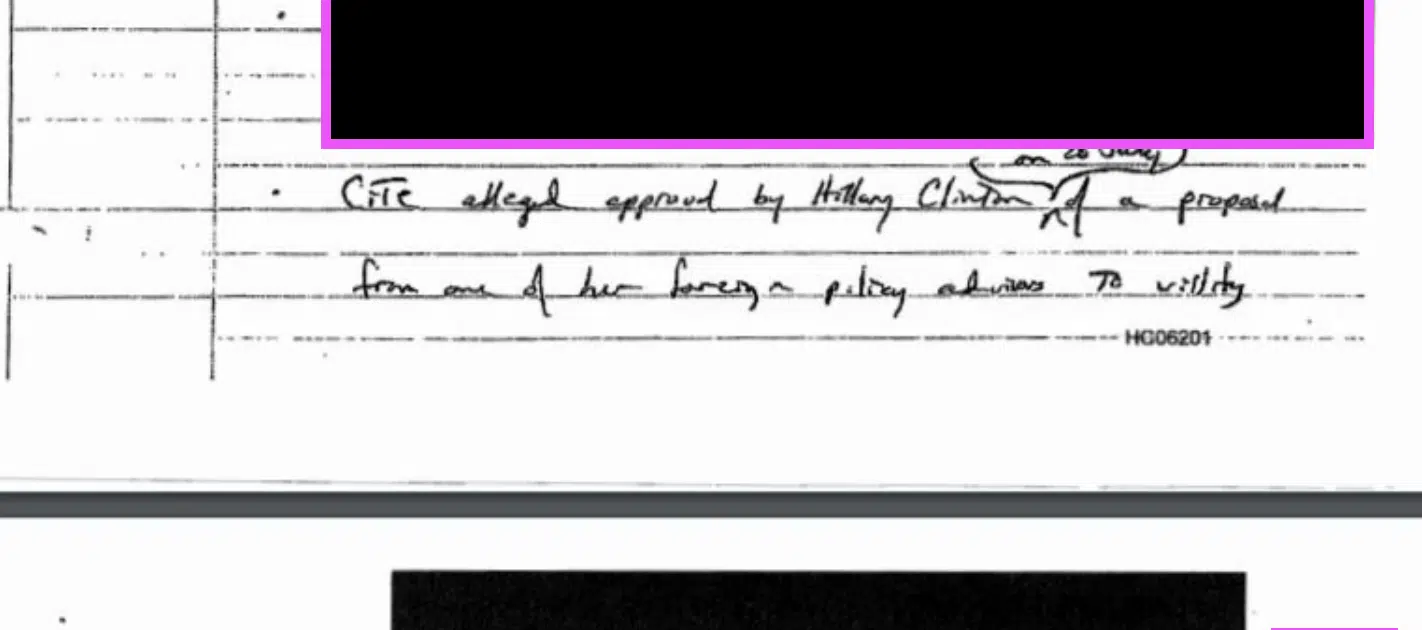 on 28 July
CiTe alleged approval by Hillary Clinton of a proposal
from one of her foreign policy advisors To villify
HC06201